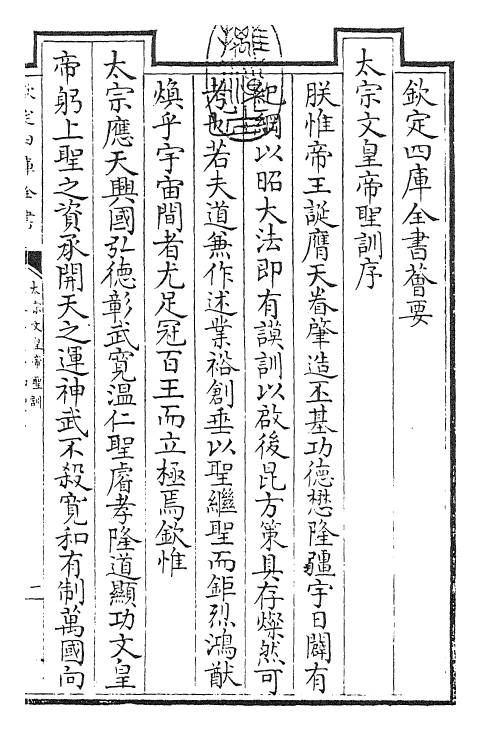 欽定四庫全書薈要
太宗文皇帝聖訓序
朕惟帝王誕膺天眷肇造丕基功德懋隆疆宇日闢有
紀綱以昭大法即有謨訓以啟後昆方策具存燦然可
考也若夫道兼作述業裕創垂以聖繼聖而鉅烈鴻猷
煥乎宇宙間者尤足冠百王而立極焉欽惟
太宗應天興國弘德彰武寬溫仁聖睿孝隆道顯功文皇
帝躬上聖之資承開天之運神武不殺寬和有制萬國向
欽定四庫全書
太宗文皇帝聖訓
二